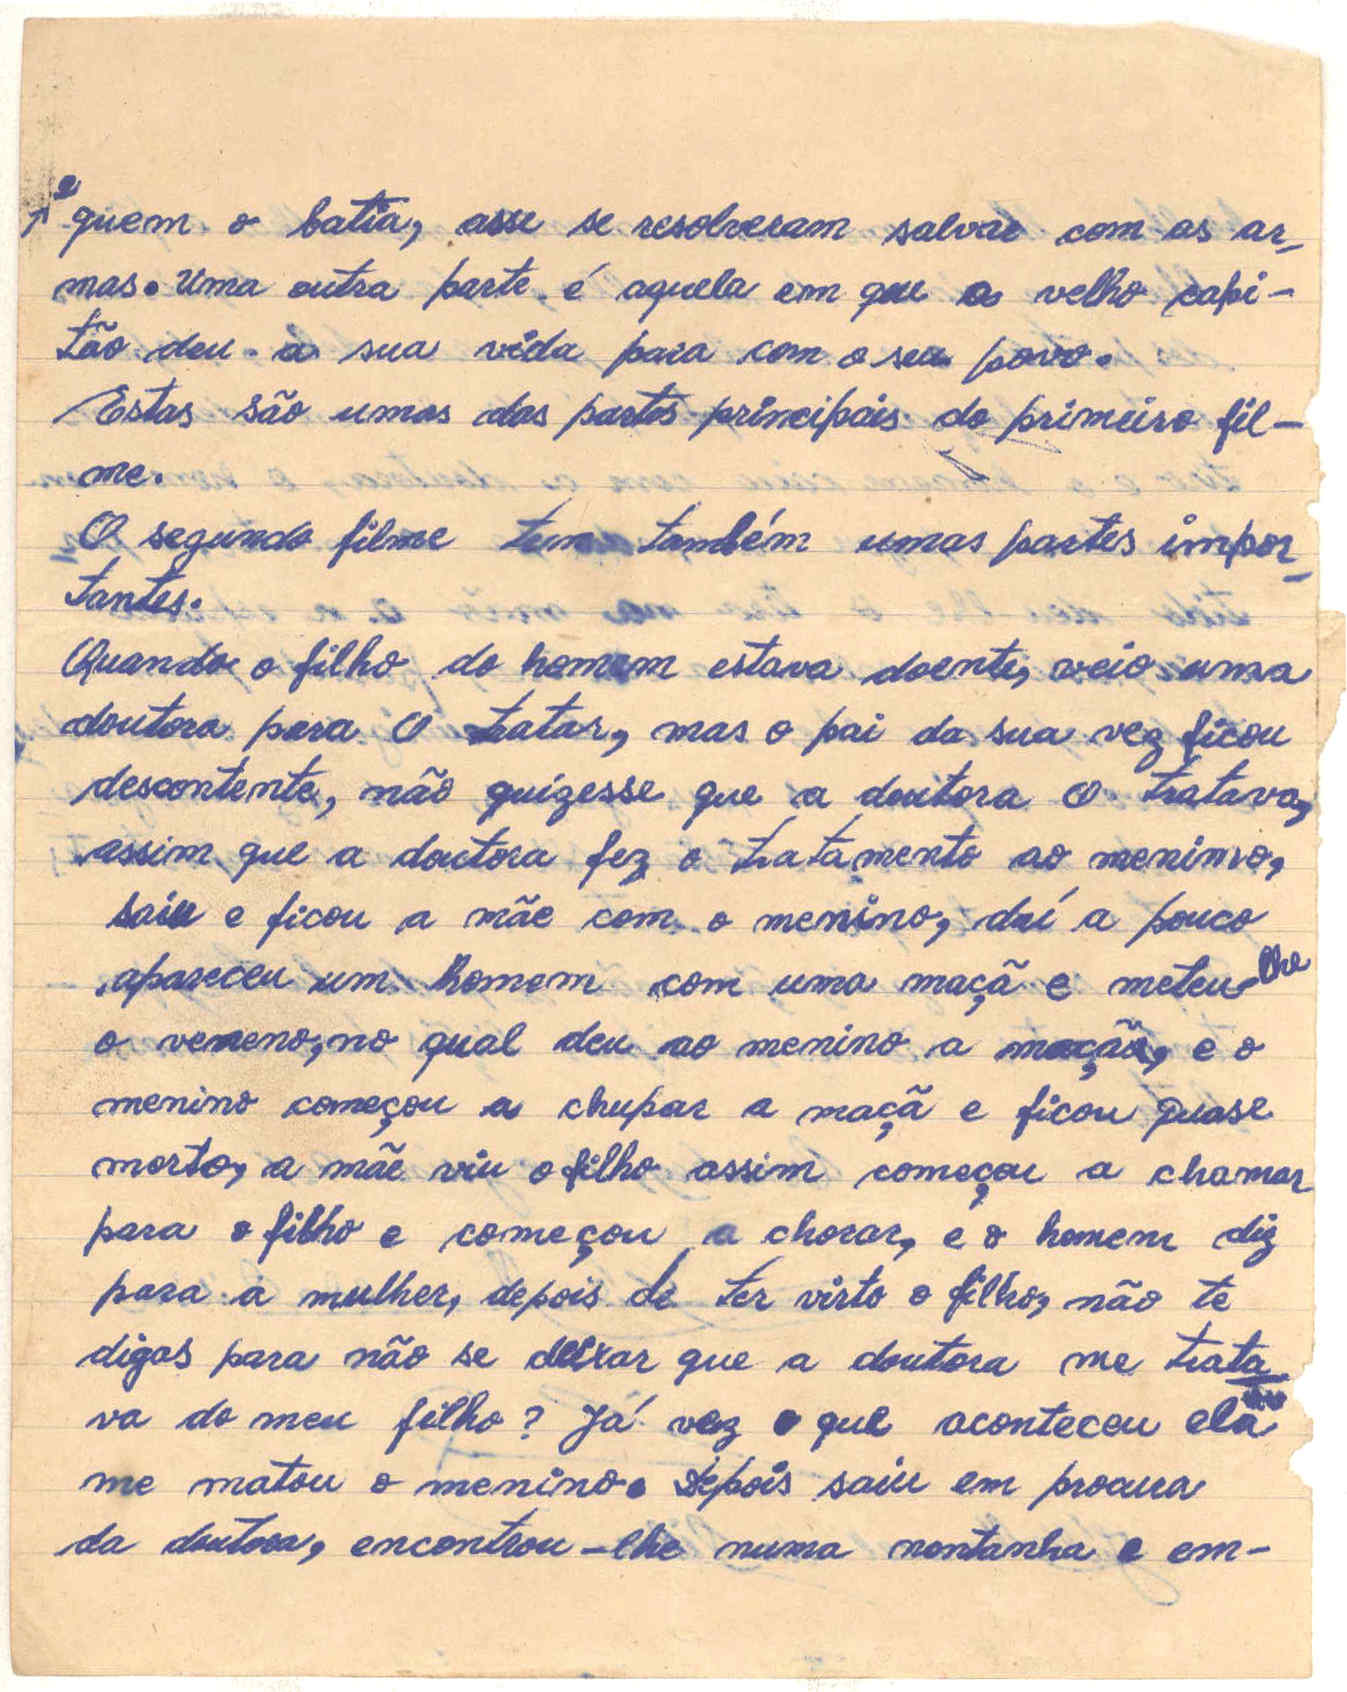 e
quem o batia, asse se resolveram salvar com as ar-
mas. Uma outra parte é aquela em que o velho capi-
tão deu a sua vida para com o seu povo.
Estas são umas das partes principais do primeiro fil-
me.
O segundo filme tem também umas partes impor-
tantes.
Quando o filho do homem estava doente, veio uma
doutora para o tratar, mas o pai da sua vez ficou
descontente, não quizesse que a doutora o tratava,
assim que a doutora fez o tratamento ao menino,
saiu e ficou a mãe com o menino, daí a pouco
apareceu um homem com uma maçã e meteu-lhe
o veneno, no qual deu ao menino a maçã, e o
menino começou a chupar a maçã e ficou quase
morto, a mãe viu o filho assim começou a chamar
para o filho e começou a chorar, e o homem diz
para a mulher, depois de ter visto o filho, não te
digas para não se deixar que a doutora me trata
va do meu filho? Já vez o que aconteceu ela
me matou o menino. Depois saiu em procura
da doutora, encontrou-lhe numa montanha e em-